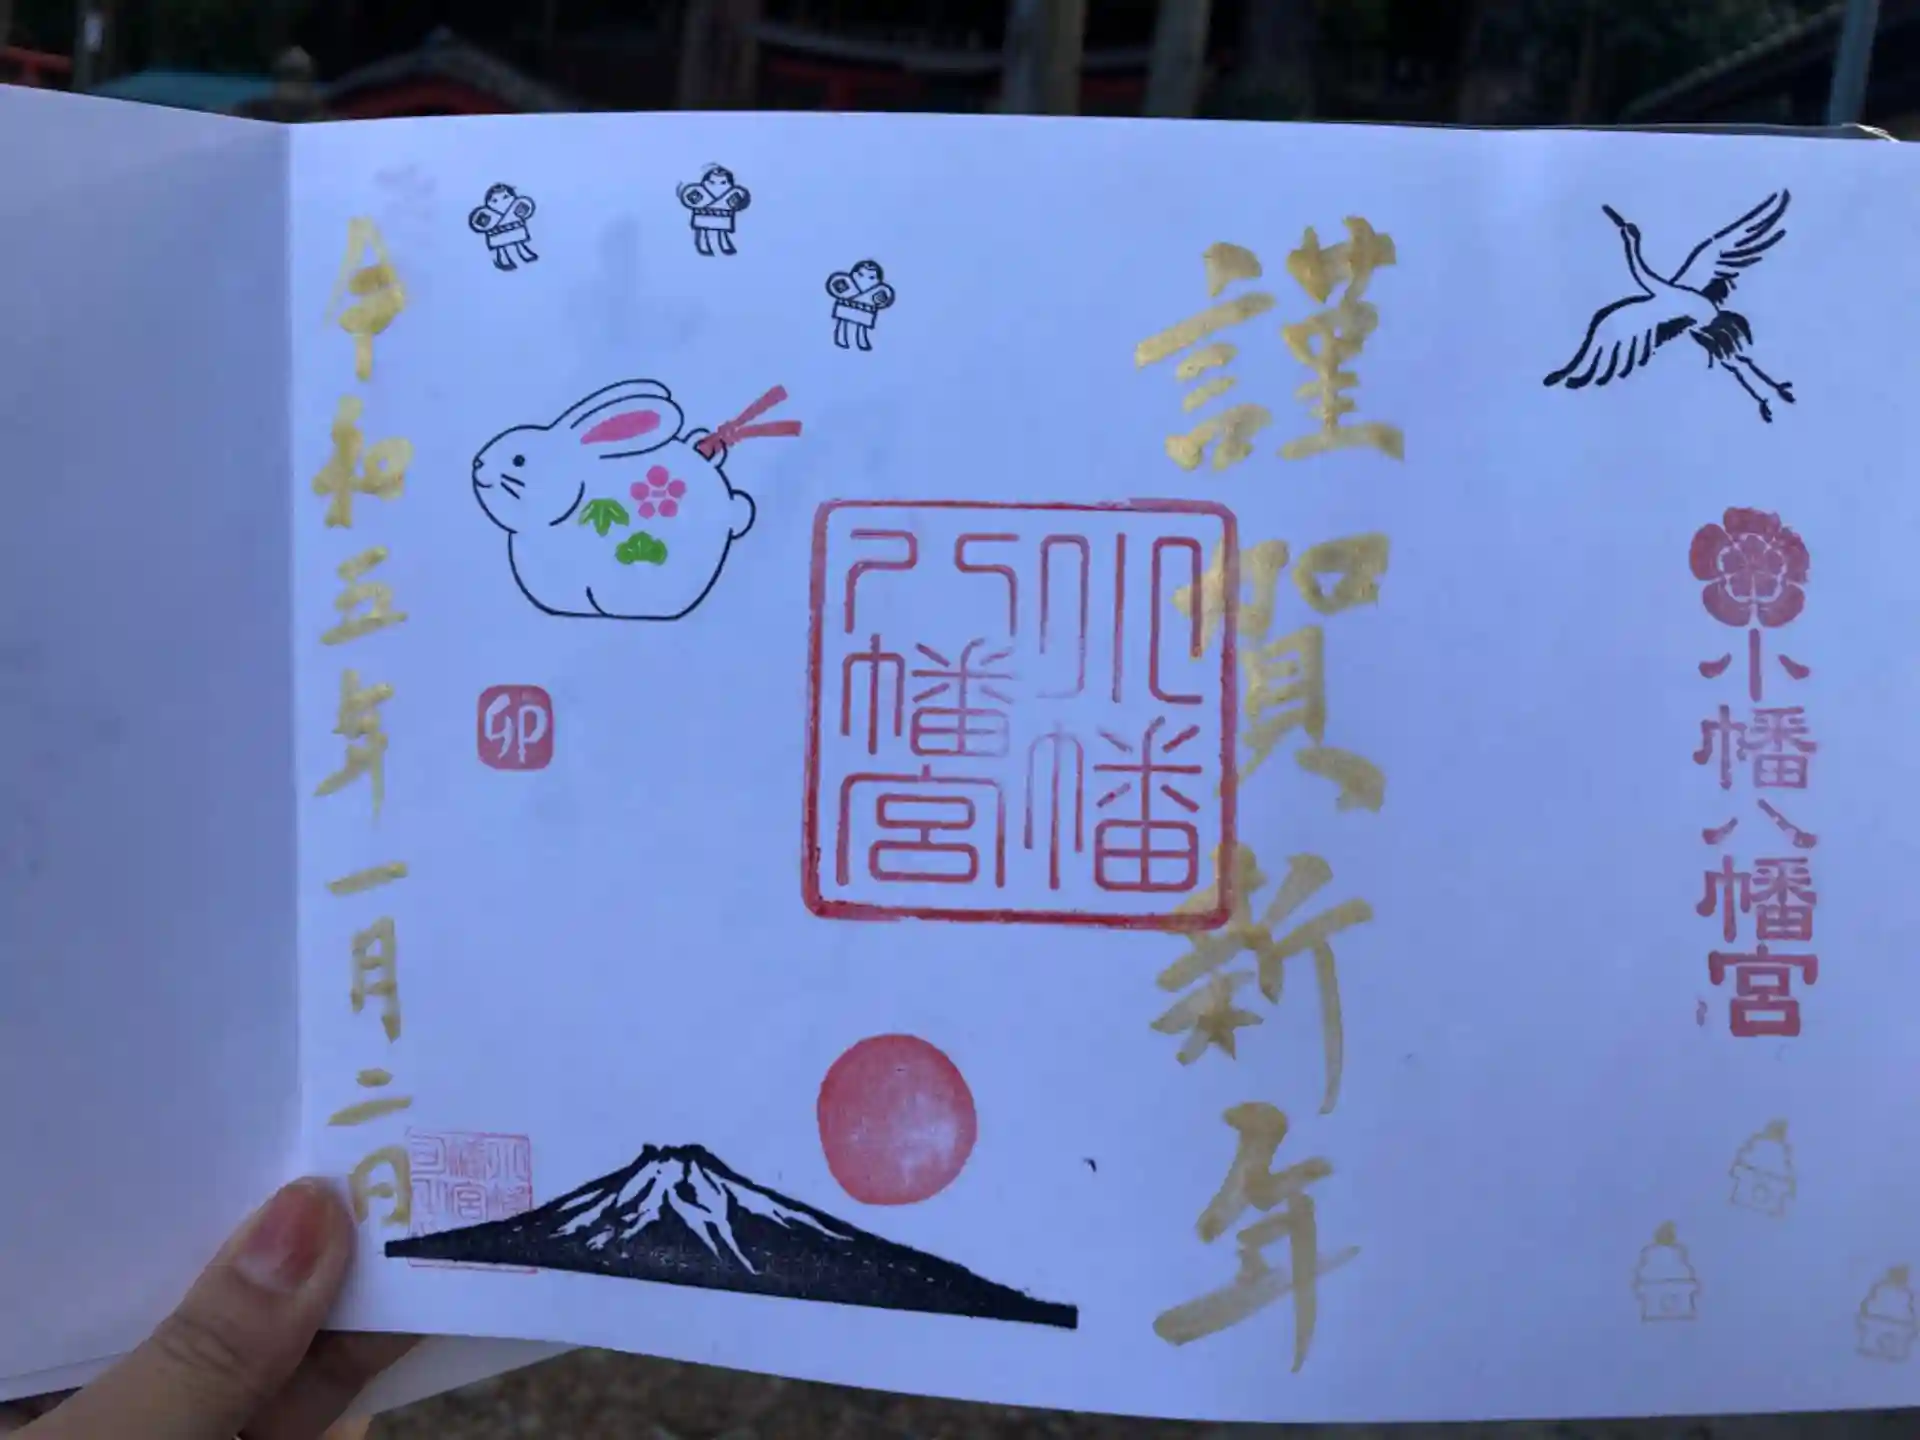 小幡八幡宮
謹賀新年
小幡
八幡宮
卯
令和五年一月二日